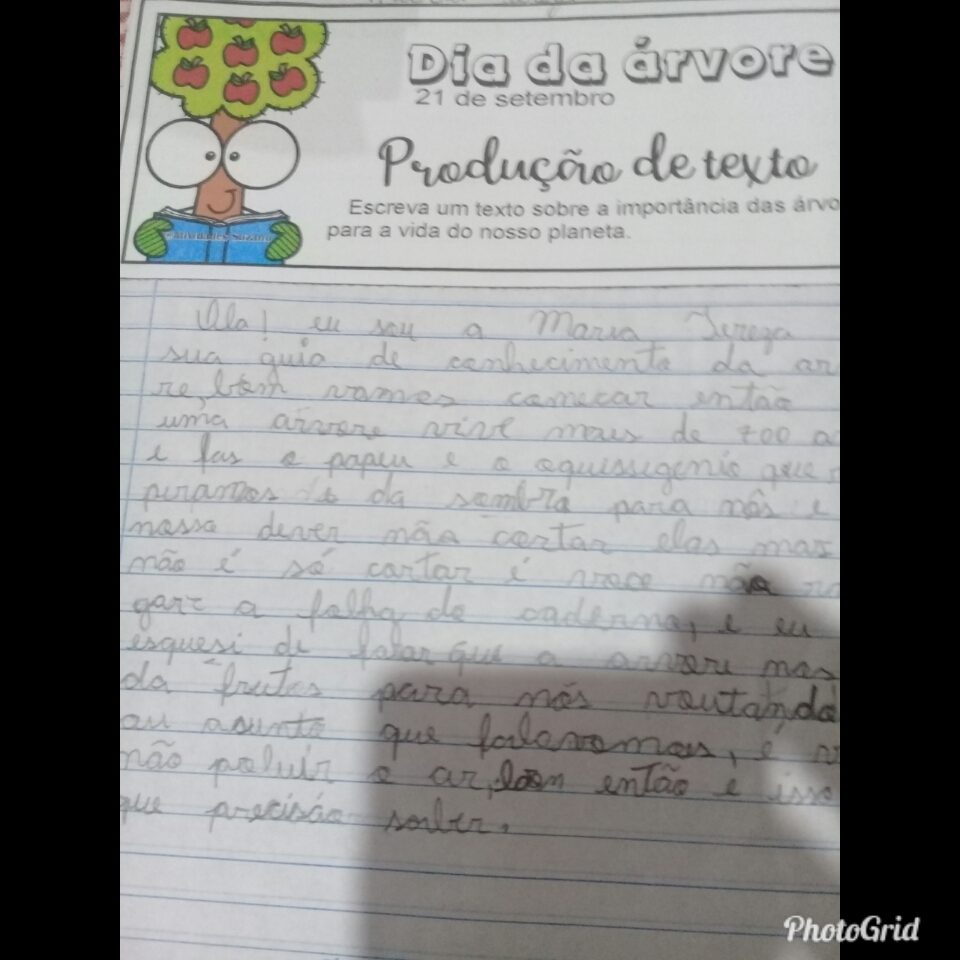 Dia da árvore
21 de setembro
Produção de texto
Escreva um texto sobre a importância das árvo
para a vida do nosso planeta.
Ola! eu sou a Maria Tereza
sua guia de conhecimento da ar
re, bem vamos comecar então
uma arvore vive mais de 700 a
e fas o papeu e o oquissigenio que
piramos e da sombra para nós e
nosso dever não cortar elas mas
não é só cortar é voce não ra
gare a folha do caderno, e eu
esquesi de falar que a arvore nas
da frutos para nós voutando
ou asunto que falavamos, é v
não poluir o ar, bom então e isso
que precisão saber.
PhotoGrid